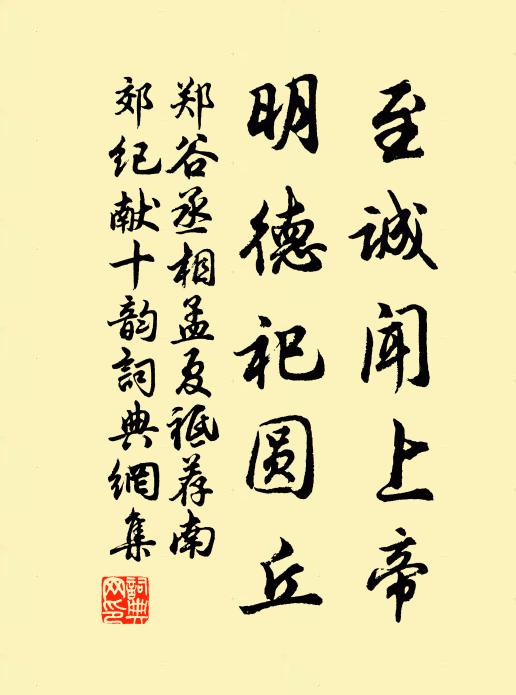 至诚闻上帝
明德祀圆丘
郑谷丞相孟夏祗荐南
郊纪献十韵詞典網集
詞典網印